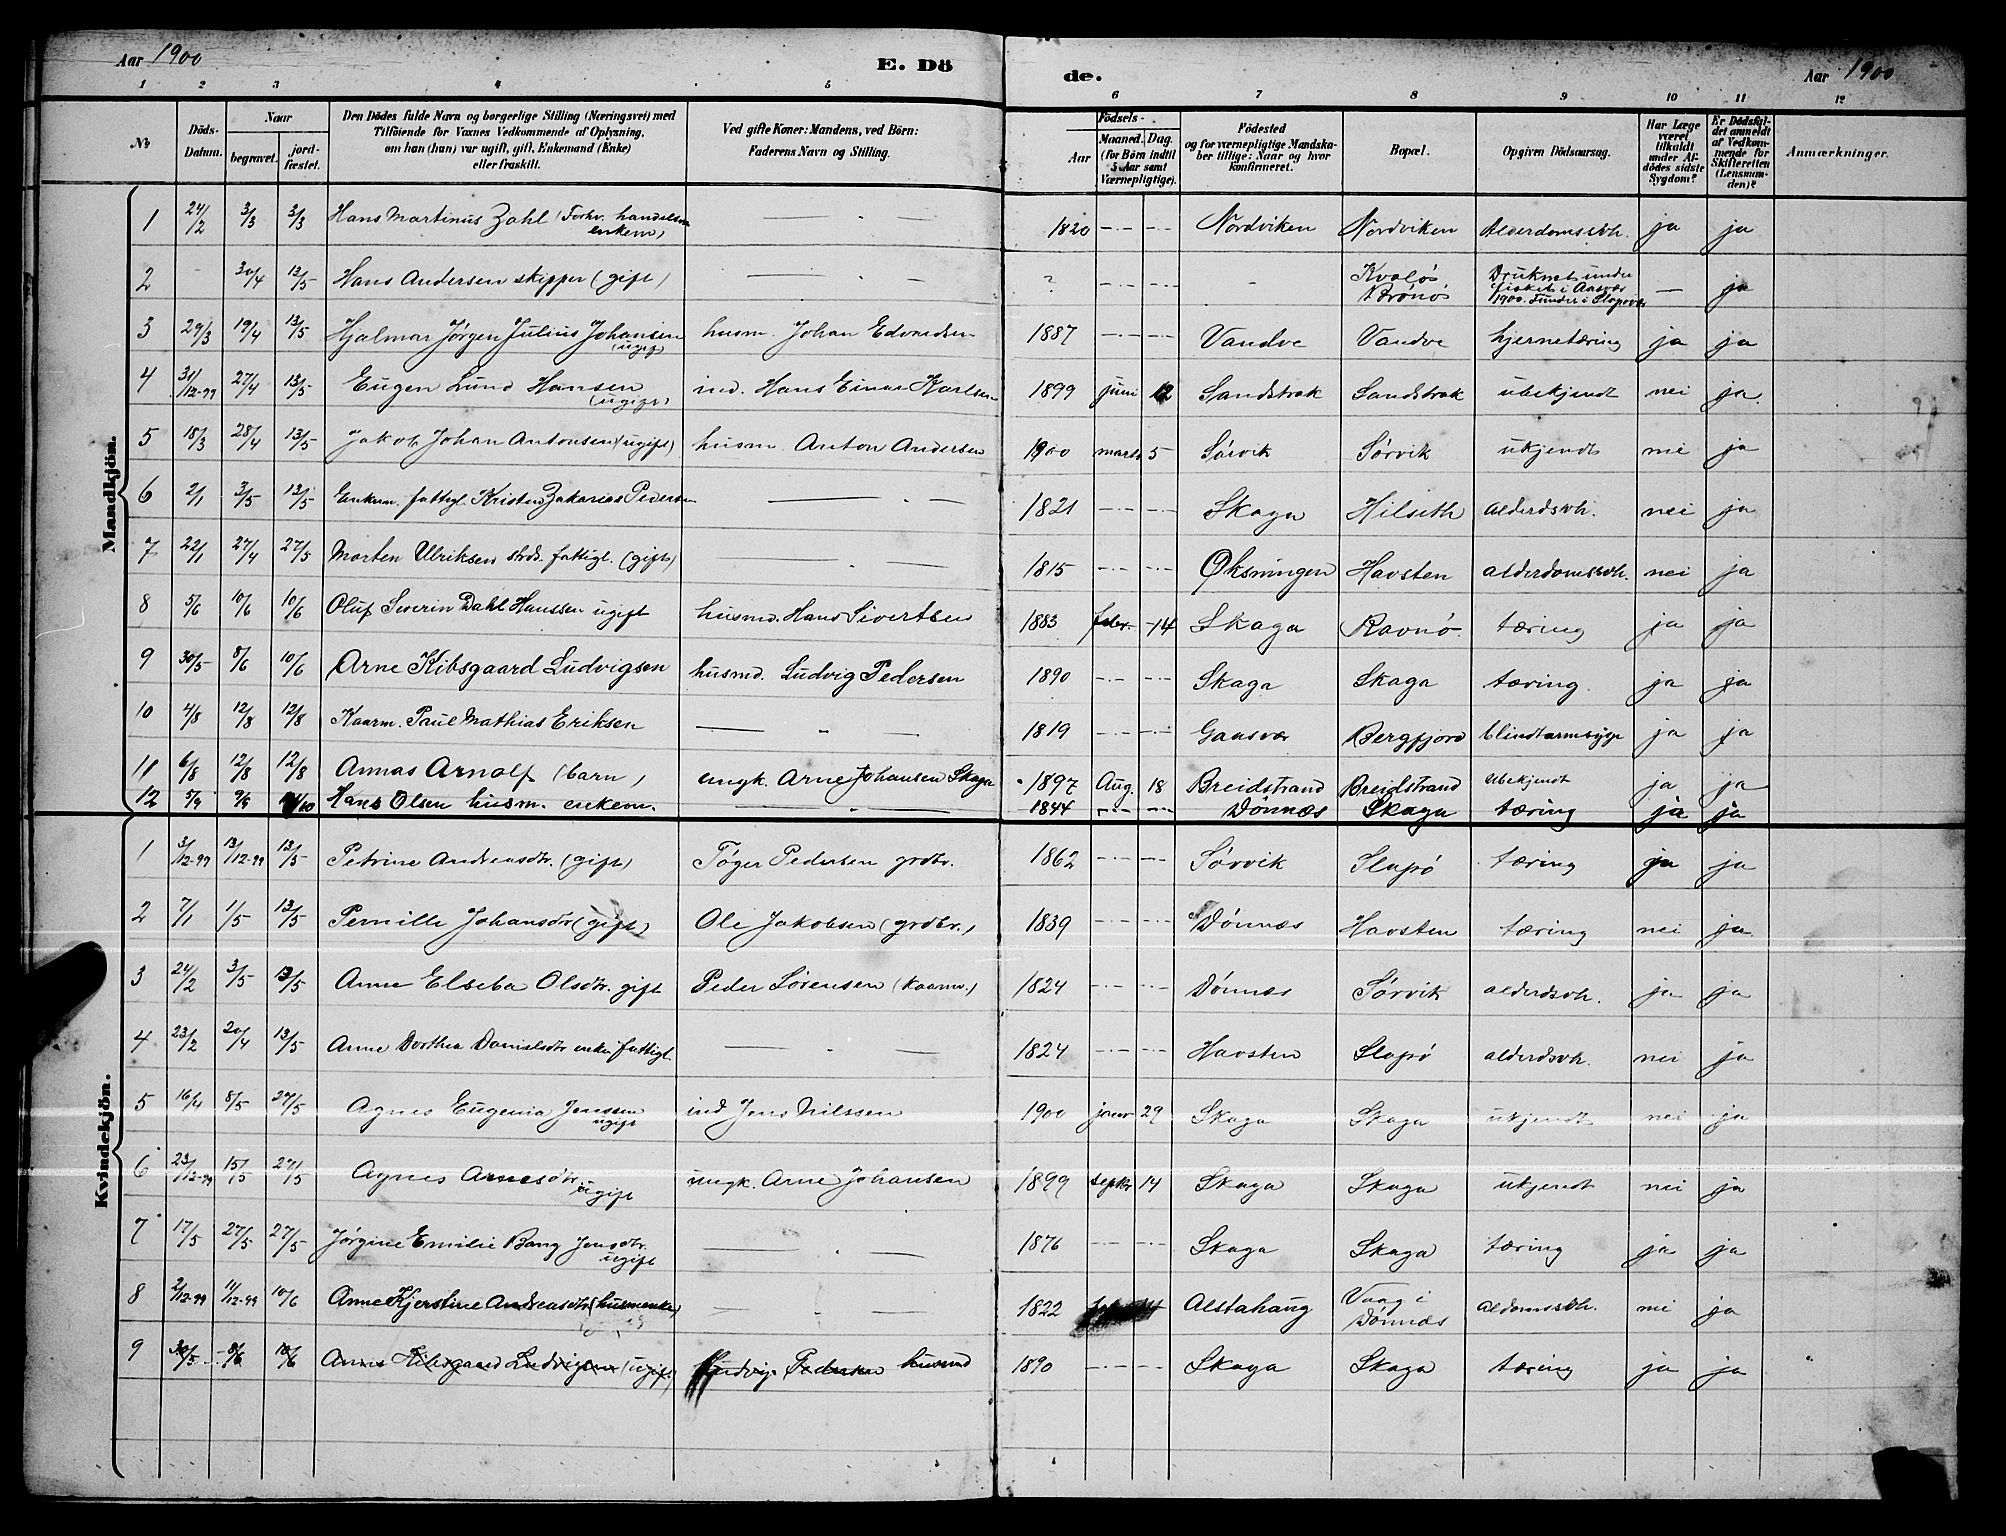 Aar 1900 E. Dö de. Aar 1900
1 2 3 4 5 6 7 8 9 10 11 12
№ Döds-Datum. Naar begravet. jordfæstet. Den Dödes fulde Navn og borgerlige Stilling (Næringsvei) med Tilföiende for Voxnes Vedkommende af Oplysning, om han (hun) var ugift, gift, Enkemand (Enke) eller fraskilt. Ved gifte Koner: Mandens, ved Börn: Faderens Navn og Stilling. Födsels- Aar Maaned. Dag. (for Börn indtil 5 Aar samt Værnepligtige). Födested og for værnepligtige Mandskaber tillige: Naar og hvor konfirmeret. Bopæl. Opgiven Dödsaarsag. Har Læge været tilkaldt under Afdödes sidste Sygdom? Er Dödsfaldet anmeldt af Vedkommende for Skifteretten (Lensmanden)? Anmærkninger.
Mandkjön.
1 24/2 3/3 3/3 Hans Martinus Zahl (Forhv. handelsm. enkem) — " — 1820 Nordviken Nordviken Alderdomssvh. ja ja
2 - 30/4 13/5 Hans Andersen skipper (gift) — — ? - Kvalös Brönö Druknet under fisket i Aasvær 1900. Funden i Slapövær — ja
3 29/3 19/4 13/5 Hjalmar Jørgen Julius Johansen (ugift) husm. Johan Edvardsen 1887 Vandve Vandve hjernetæring ja ja
4 31/12-99 27/4 13/5 Eugen Lund Hansen (ugift) ind. Hans Einar Karlsen 1899 juni 12 Sandstrak Sandstrak ubekjendt nei ja
5 18/3 28/4 13/5 Jakob Johan Antonsen (ugift) husm. Anton Andersen 1900 marts 5 Sørvik Sørvik ukjendt nei ja
6 2/1 3/5 13/5 Enkem. fattigl. Kristen Zakarias Pedersen — " — 1821 Skaga Hilseth alderdsvh. nei ja
7 22/1 27/4 27/5 Morten Ulriksen fattigl. (gift) — " — 1815 Øksningen Havsten alderdomssvh. nei ja
8 5/6 10/6 10/6 Oluf Severin Dahl Hanssen ugift husmd. Hans Sivertsen 1883 febr. 14 Skaga Ravnö tæring ja ja
9 30/5 8/6 10/6 Arne Kibsgaard Ludvigsen husmd. Ludvig Pedersen 1890 Skaga Skaga tæring. ja ja
10 4/8 12/8 12/8 Kaarm. Paul Mathias Eriksen — " — 1819 Gaasvær Bergfjord blindtarmsyge ja ja
11 6/8 12/8 12/8 Annas Arnolf (barn) ungk. Arne Johansen Skaga 1897 Aug. 18 Breidstrand Breidstrand ubekjendt ja ja
12 5/9 9/9 Hans Olsen husm. enkem. — 1844 Dönnæs Skaga tæring ja ja
Kvindekjön.
1 3/12-99 13/12-99 13/5 Petrine Andreasdtr. (gift) Tøger Pedersen grdbr. 1862 Sørvik Slapö tæring ja ja
2 7/1 1/5 13/5 Pernille Johansdtr (gift) Ole Jakobsen (grdbr.) 1839 Dönnæs Havsten tæring nei ja
3 24/2 3/5 13/5 Anne Elseba Olsdtr. gift Peder Sørensen (kaarm.) 1824 Dönnæs Sørvik alderdsvh. ja ja
4 23/2 20/4 13/5 Anne Dorthea Danielsdtr enke fattigl. — " — 1824 Havsten Slapö alderdsvh. nei ja
5 16/4 8/5 27/5 Agnes Eugenia Jenssen ugift ind Jens Nilssen 1900 januar 29 Skaga Skaga ukjendt nei ja
6 23/12-99 15/5 27/5 Agnes Arnesdtr. ugift ungk. Arne Johansen 1899 septbr 14 Skaga Skaga ukjendt nei ja
7 17/5 27/5 27/5 Jørgine Emilie Bang Jensdtr. ugift — " — 1876 Skaga Skaga tæring ja ja
8 2/12-99 11/12-99 10/6 Anne Kjerstine Andreasdtr (husmenke) — — 1822 Alstahaug Vaag i Dönnæs aldomssvh. nei ja
9 30/5 8/6 10/6 Arne Kibsgaard Ludvigsen (ugift) Ludvig Pedersen husmd 1890 Skaga Skaga tæring ja ja